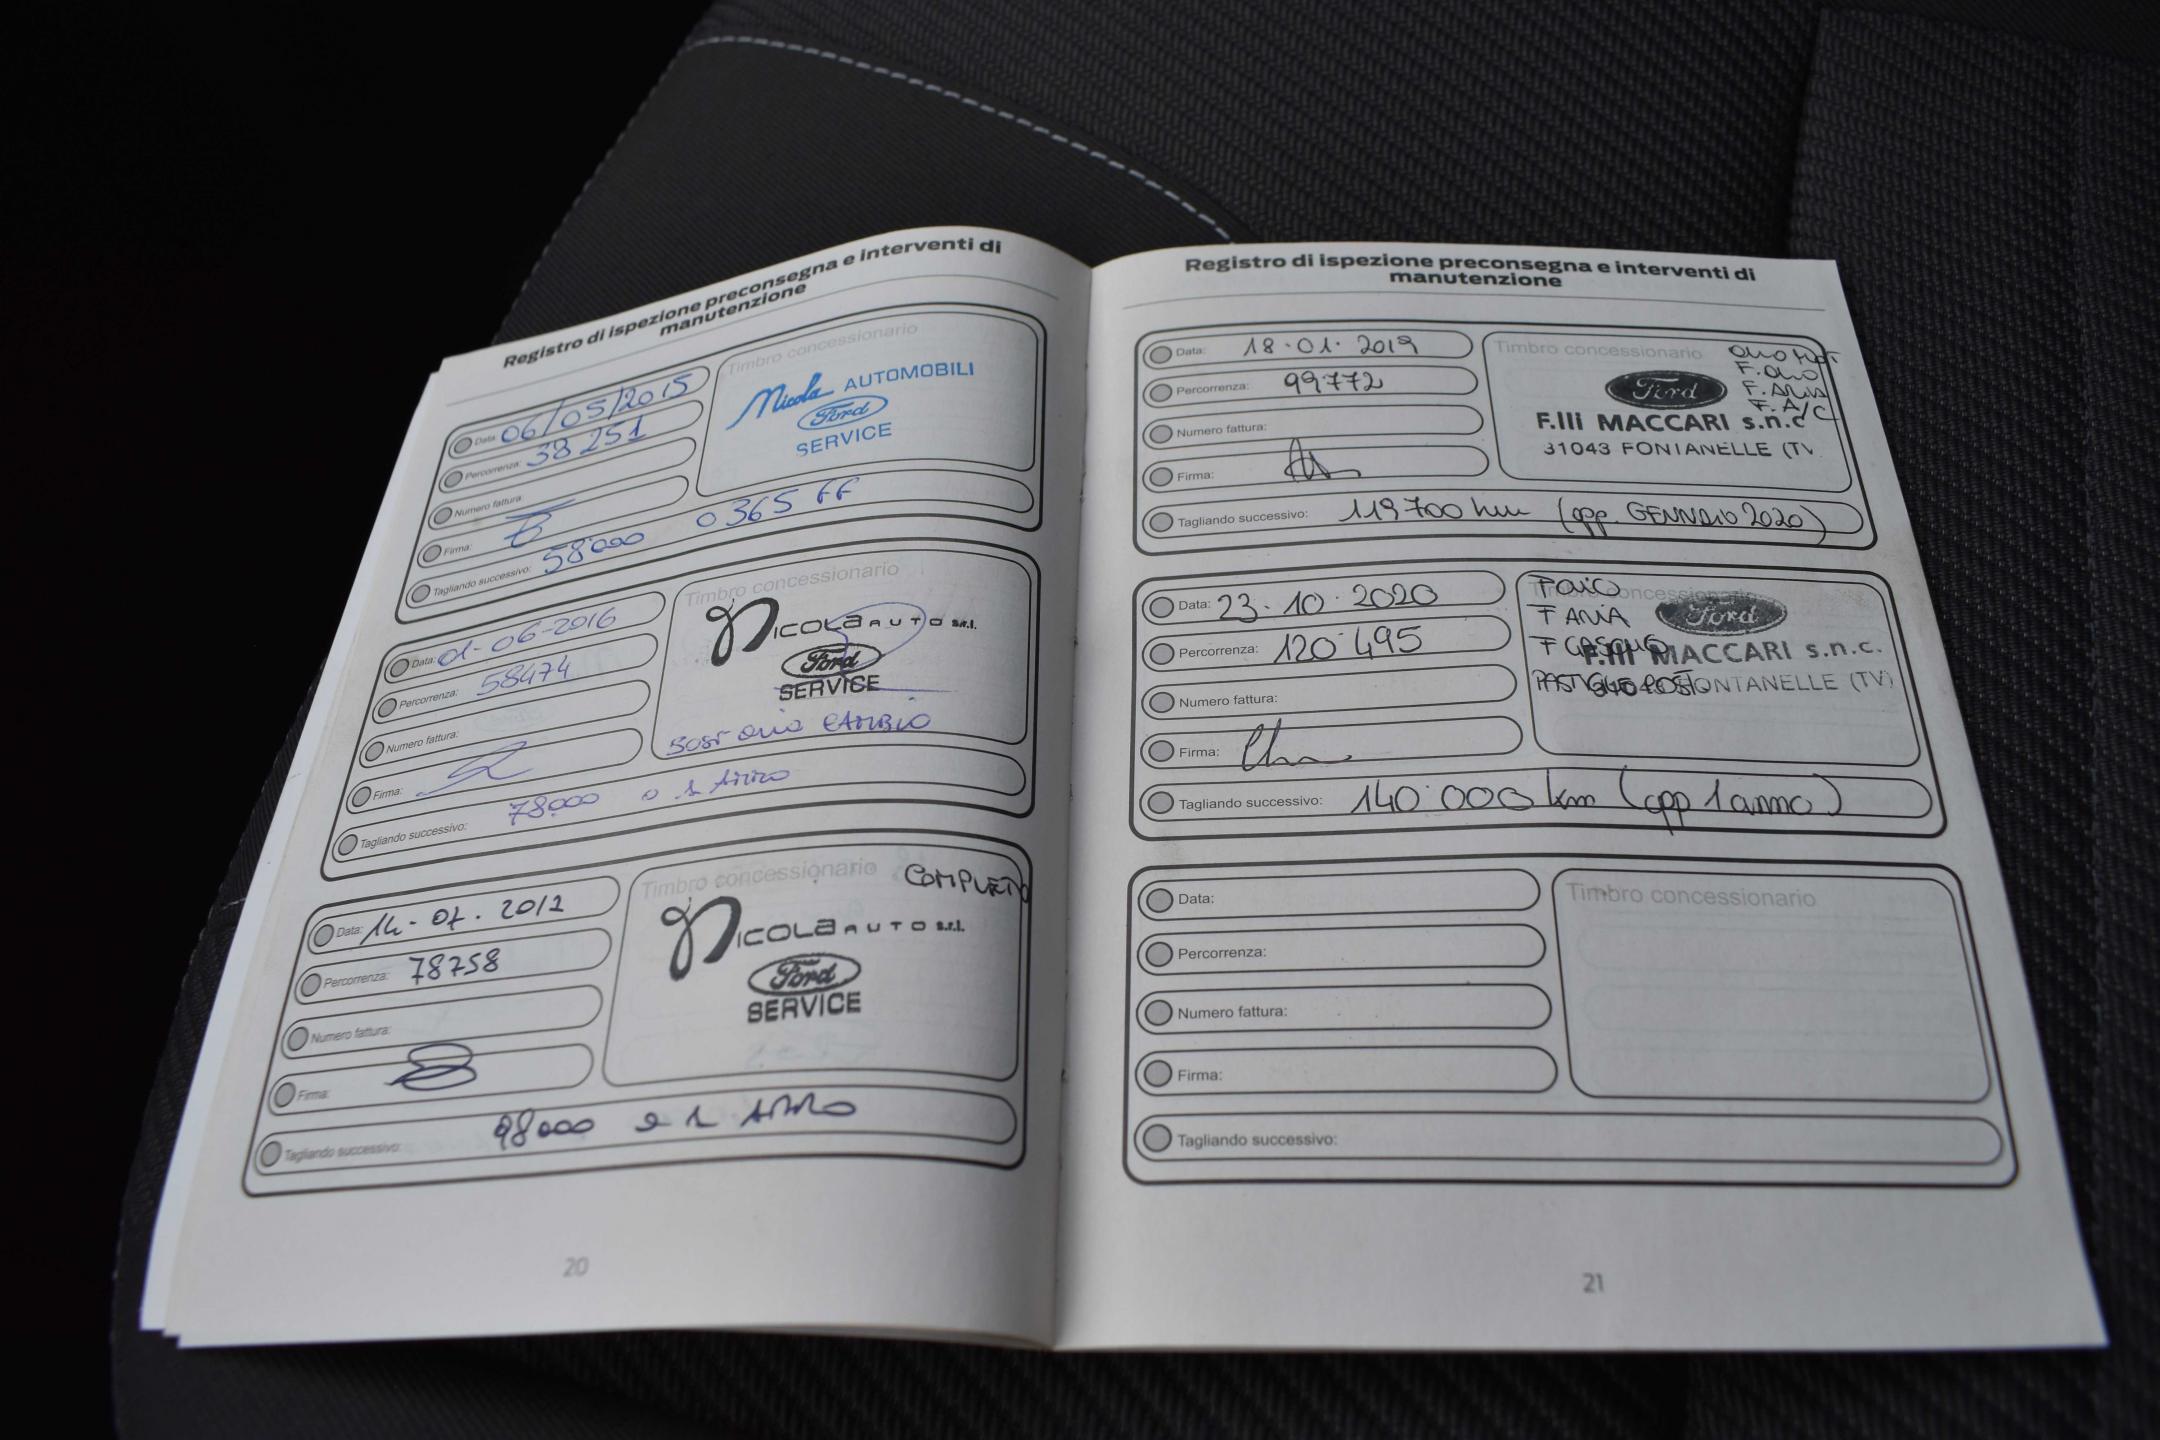 Registro di ispezione preconsegna e interventi di
manutenzione
Data: 06/05/2015
Percorrenza: 38251
Numero fattura:
Firma:
Tagliando successivo: 58000 o 365 GG
Timbro concessionario
Nicola AUTOMOBILI
Ford
SERVICE
Data: 01-06-2016
Percorrenza: 58474
Numero fattura:
Firma:
Tagliando successivo: 78000 o 1 ANNO
Timbro concessionario
NICOLA AUTO s.r.l.
Ford
SERVICE
SOST OLIO CAMBIO
Data: 14-07-2017
Percorrenza: 78758
Numero fattura:
Firma:
Tagliando successivo: 98000 o 1 ANNO
Timbro concessionario
COMPLETO
NICOLA AUTO s.r.l.
Ford
SERVICE
20
Registro di ispezione preconsegna e interventi di
manutenzione
Data: 18.01.2019
Percorrenza: 99772
Numero fattura:
Firma:
Tagliando successivo: 119700 km (opp. GENNAIO 2020)
Timbro concessionario
OLIO MOT
F. OLIO
F. ARIA
F. A/C
Ford
F.lli MACCARI s.n.c
31043 FONTANELLE (TV
Data: 23.10.2020
Percorrenza: 120.495
Numero fattura:
Firma:
Tagliando successivo: 140.000 km (opp 1 anno)
Timbro concessionario
F OLIO
F ARIA
F GASOLIO
PASTIGLIE POST
Ford
F.lli MACCARI s.n.c.
31043 FONTANELLE (TV)
Data:
Percorrenza:
Numero fattura:
Firma:
Tagliando successivo:
Timbro concessionario
21